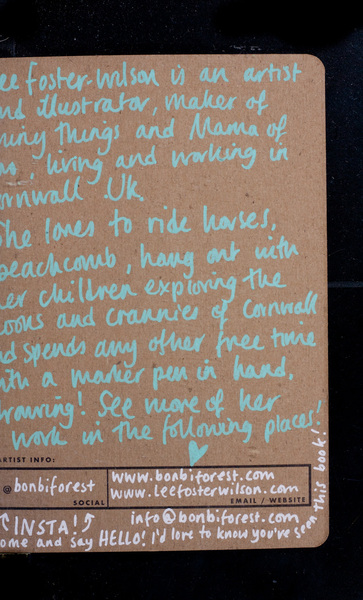 ee foster-wilson is an artist
nd illustrator, maker of
hiny things and Mama of
, living and working in
ornwall UK.
he loves to ride horses,
beachcomb, hang out with
er children exploring the
ooks and crannies of Cornwall
nd spends any other free time
ith a marker pen in hand,
drawing! See more of her
work in the following places!
ARTIST INFO:
@bonbiforest
SOCIAL
www.bonbiforest.com
www.leefosterwilson.com
EMAIL / WEBSITE
↑INSTA!↑ info@bonbiforest.com
ome and say HELLO! I'd love to know you've seen this book!